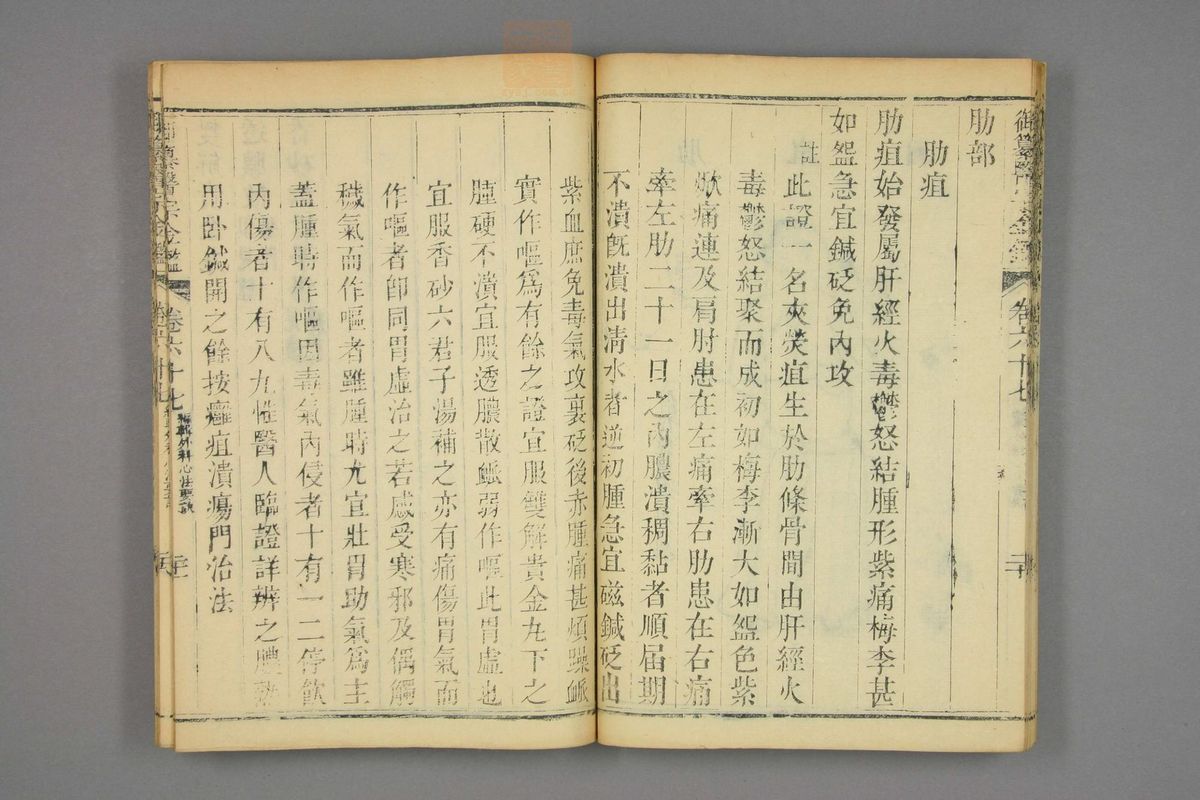 肋部
肋疽
肋疽始發屬肝經火毒鬱怒結腫形紫痛梅李甚
如盌急宜鍼砭免內攻
註此證一名夾熒疽生於肋條骨間由肝經火
毒鬱怒結聚而成初如梅李漸大如盌色紫
焮痛連及肩肘患在左痛牽右肋患在右痛
牽左肋二十一日之內膿潰稠黏者順屆期
不潰旣潰出清水者逆初腫急宜磁鍼砭出
紫血庶免毒氣攻裏砭後赤腫痛甚煩躁脈
實作嘔爲有餘之證宜服雙解貴金丸下之
腫硬不潰宜服透膿散脈弱作嘔此胃虛也
宜服香砂六君子湯補之亦有痛傷胃氣而
作嘔者卽同胃虛治之若感受寒邪及偶觸
穢氣而作嘔者雖腫時尤宜壯胃助氣爲主
蓋腫時作嘔因毒氣內侵者十有一二停飲
內傷者十有八九惟醫人臨證詳辨之膿熟
用卧鍼開之餘按癰疽潰瘍門治法
御纂醫宗金鑑
卷六十七